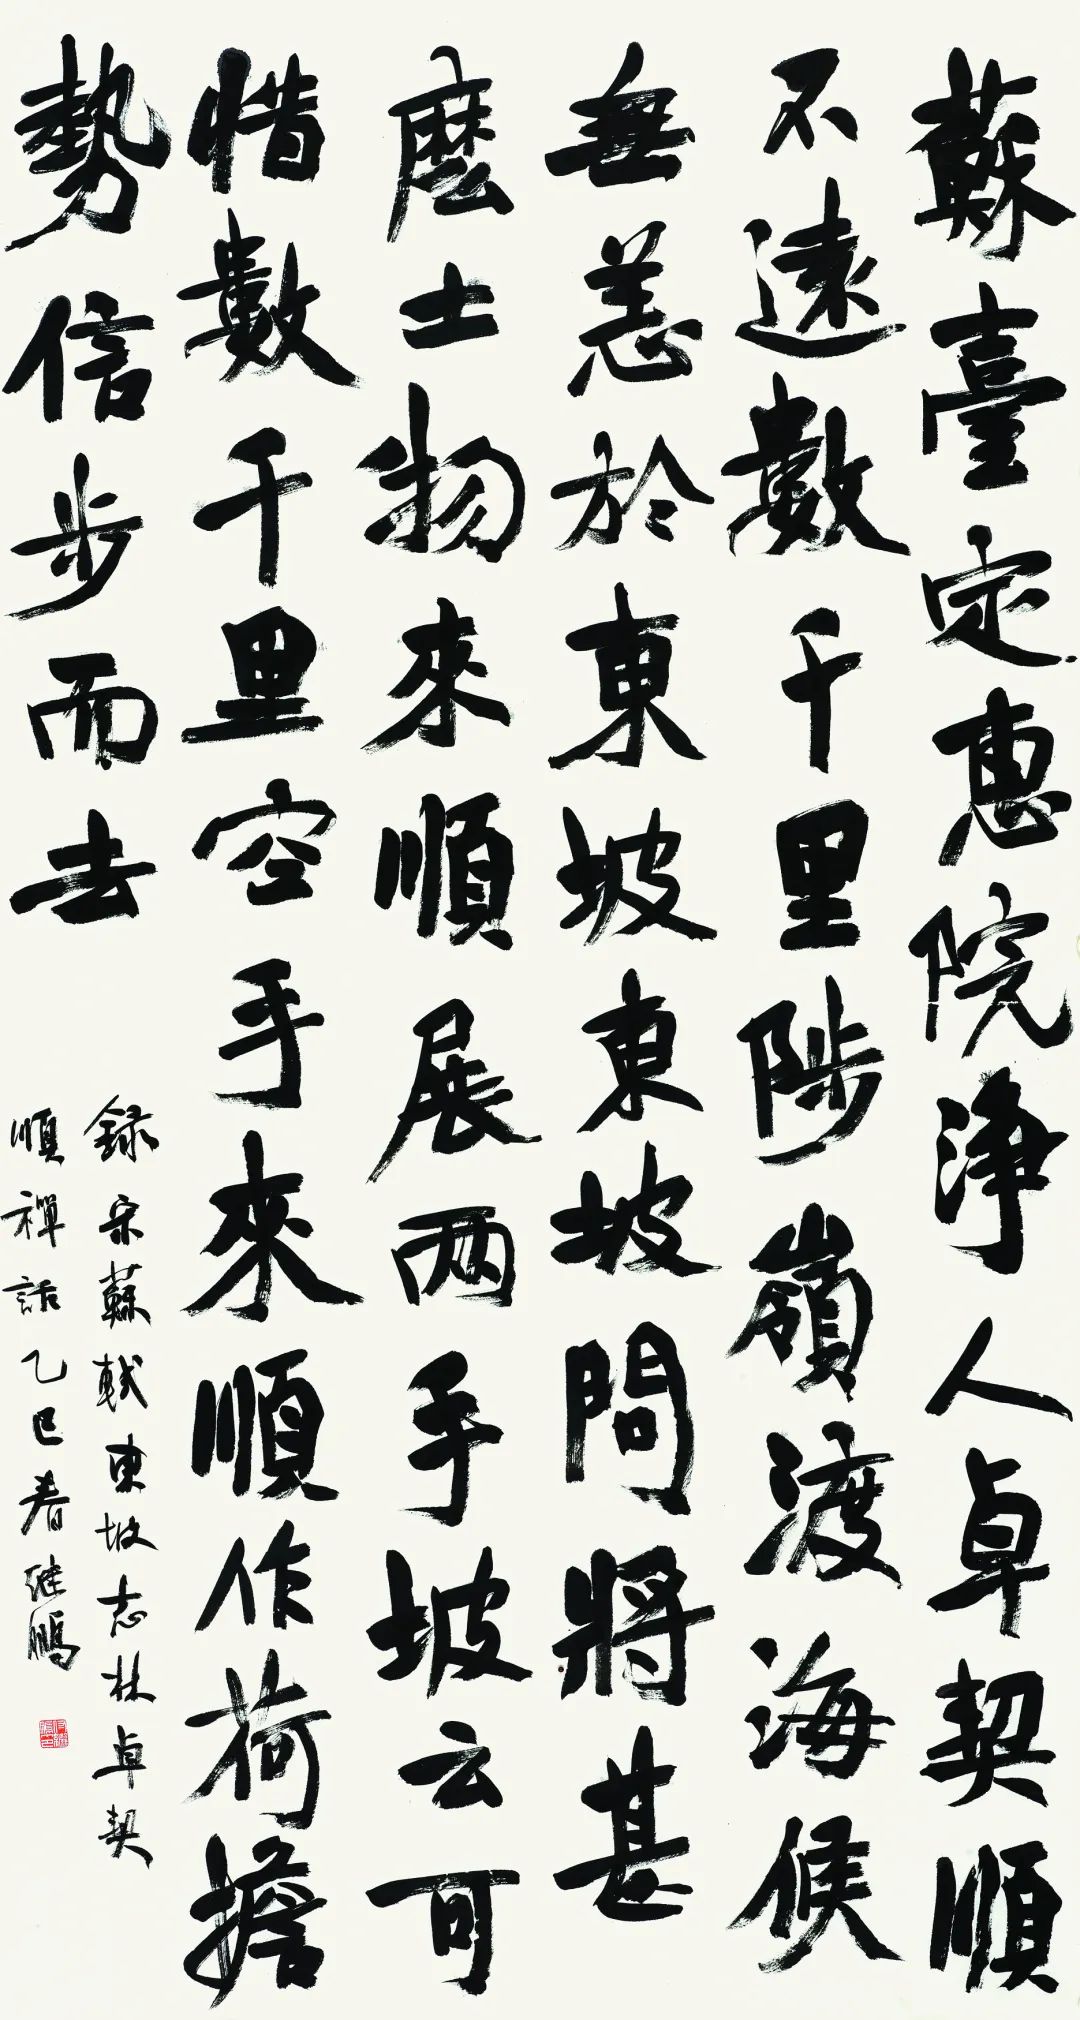 蘇臺定惠院淨人卓契順
不遠數千里陟嶺渡海候
無恙於東坡東坡問將甚
麽士物來順展两手坡云可
惜數千里空手來順作荷擔
勢信步而去
錄宋蘇軾東坡志林卓契
順禪話乙巳春继鵬